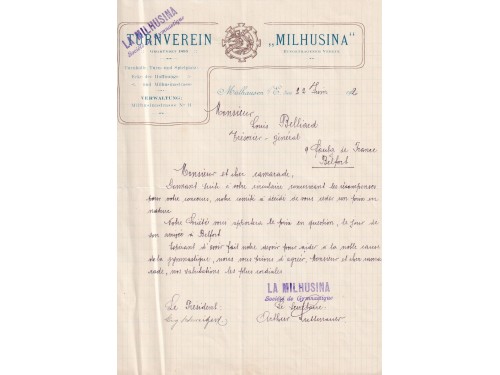 LA MILHUSINA
Société de Gymnastique
TURNVEREIN „MILHUSINA"
VERWALTUNG:
Mülhausen i/E. den 22 Juin
Monsieur
Louis Belliard
Trésorier-général
Faubg de France
Belfort
Monsieur et cher camarade,
Donnant suite à votre circulaire concernant les récompenses
pour votre concours, notre comité a décidé de vous céder un prix en
nature.
Notre Société vous apportera le prix en question, le jour de
son voyage à Belfort.
d'avoir fait notre devoir pour aider à la noble cause
de la gymnastique, nous vous prions d'agréer, Monsieur et cher cama-
rade, nos salutations les plus cordiales
LA MILHUSINA
Société de Gymnastique
Le Président: Le
Arthur